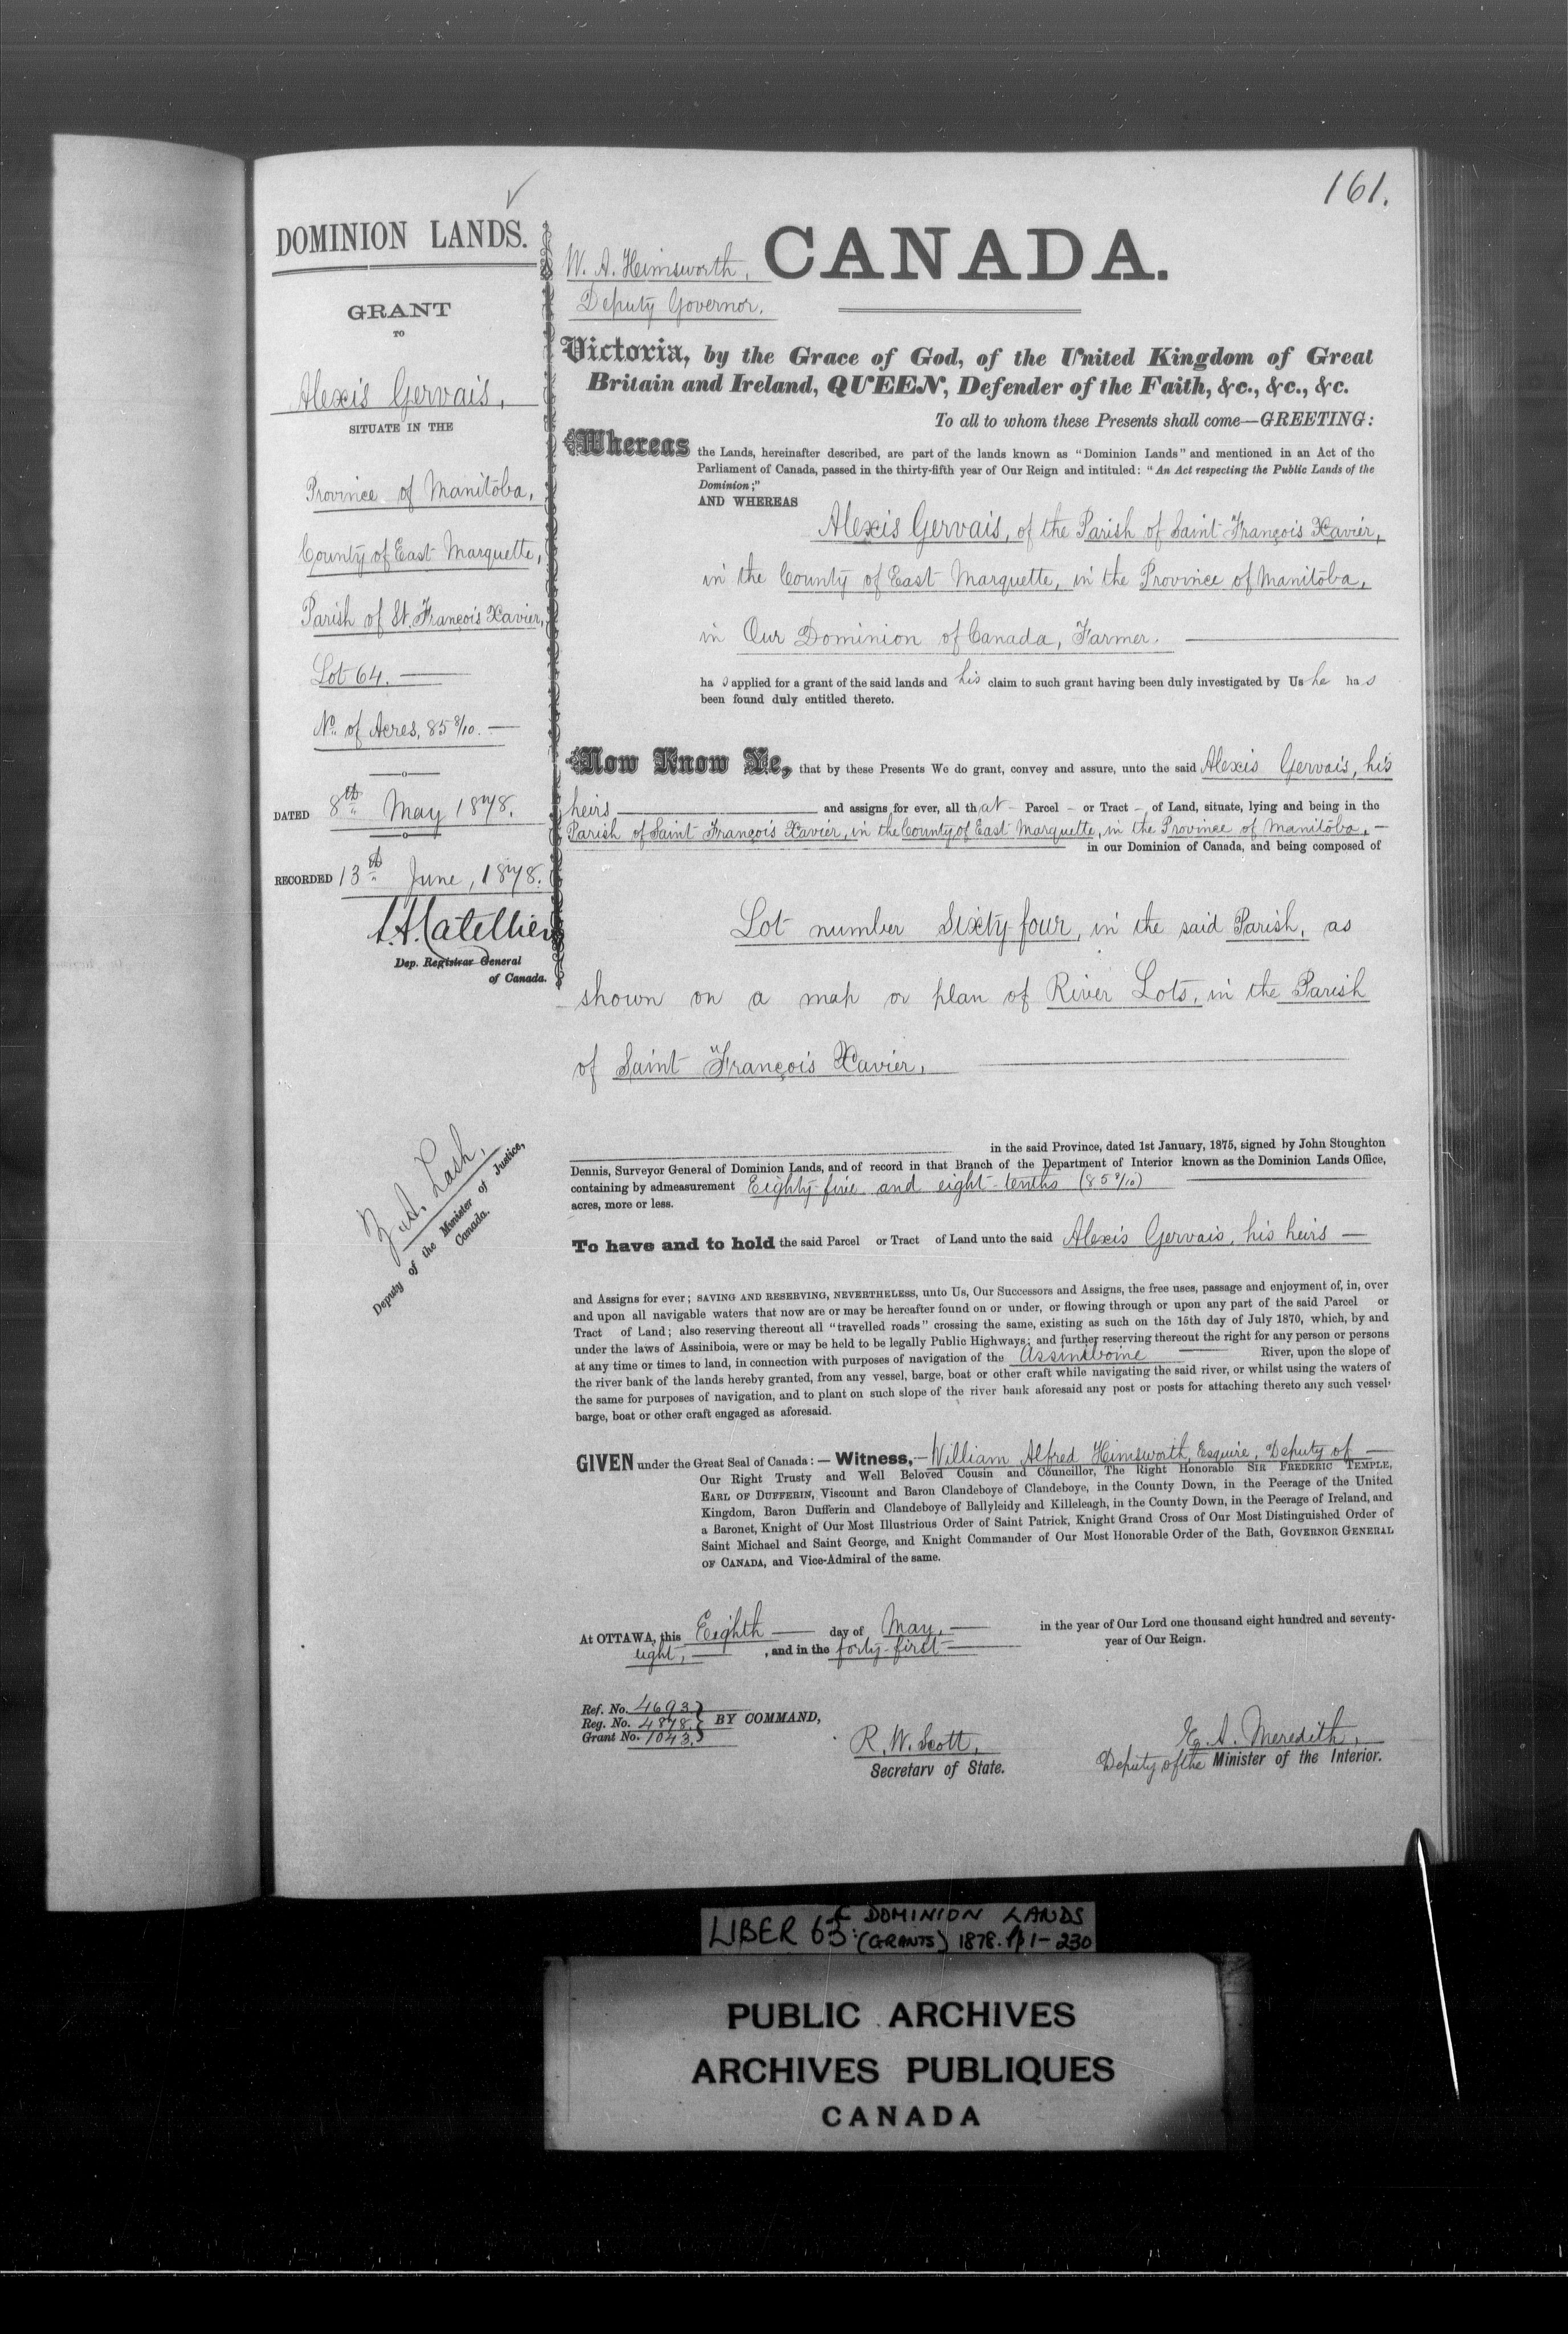 161.
DOMINION LANDS.
GRANT
TO
Alexis Gervais,
SITUATE IN THE
Province of Manitoba,
County of East Marquette,
Parish of St. François Xavier,
Lot 64. —
No. of Acres, 85 8/10. —
DATED 8th May 1878.
RECORDED 13th June, 1878.
Dep. Registrar General
of Canada.
Z. A. Lash,
Deputy of the Minister of Justice,
Canada.
W. A. Himsworth,
Deputy Governor.
CANADA.
Victoria, by the Grace of God, of the United Kingdom of Great
Britain and Ireland, QUEEN, Defender of the Faith, &c., &c., &c.
To all to whom these Presents shall come—GREETING:
Whereas the Lands, hereinafter described, are part of the lands known as "Dominion Lands" and mentioned in an Act of the
Parliament of Canada, passed in the thirty-fifth year of Our Reign and intituled: "An Act respecting the Public Lands of the
Dominion;"
AND WHEREAS
Alexis Gervais, of the Parish of Saint François Xavier,
in the County of East Marquette, in the Province of Manitoba,
in Our Dominion of Canada, Farmer.
ha s applied for a grant of the said lands and his claim to such grant having been duly investigated by Us he ha s
been found duly entitled thereto.
Now Know Ye, that by these Presents We do grant, convey and assure, unto the said Alexis Gervais, his
heirs, and assigns for ever, all that — Parcel — or Tract — of Land, situate, lying and being in the
Parish of Saint François Xavier, in the County of East Marquette, in the Province of Manitoba, —
in our Dominion of Canada, and being composed of
Lot number Sixty-four, in the said Parish, as
shown on a map or plan of River Lots, in the Parish
of Saint François Xavier,
in the said Province, dated 1st January, 1875, signed by John Stoughton
Dennis, Surveyor General of Dominion Lands, and of record in that Branch of the Department of Interior known as the Dominion Lands Office,
containing by admeasurement Eighty-five and eight-tenths (85 8/10)
acres, more or less.
To have and to hold the said Parcel or Tract of Land unto the said Alexis Gervais, his heirs —
and Assigns for ever; SAVING AND RESERVING, NEVERTHELESS, unto Us, Our Successors and Assigns, the free uses, passage and enjoyment of, in, over
and upon all navigable waters that now are or may be hereafter found on or under, or flowing through or upon any part of the said Parcel or
Tract of Land; also reserving thereout all "travelled roads" crossing the same, existing as such on the 15th day of July 1870, which, by and
under the laws of Assiniboia, were or may be held to be legally Public Highways; and further reserving thereout the right for any person or persons
at any time or times to land, in connection with purposes of navigation of the Assiniboine River, upon the slope of
the river bank of the lands hereby granted, from any vessel, barge, boat or other craft while navigating the said river, or whilst using the waters of
the same for purposes of navigation, and to plant on such slope of the river bank aforesaid any post or posts for attaching thereto any such vessel,
barge, boat or other craft engaged as aforesaid.
GIVEN under the Great Seal of Canada: — Witness, — William Alfred Himsworth, Esquire, Deputy of —
Our Right Trusty and Well Beloved Cousin and Councillor, The Right Honorable SIR FREDERIC TEMPLE,
EARL OF DUFFERIN, Viscount and Baron Clandeboye of Clandeboye, in the County Down, in the Peerage of the United
Kingdom, Baron Dufferin and Clandeboye of Ballyleidy and Killeleagh, in the County Down, in the Peerage of Ireland, and
a Baronet, Knight of Our Most Illustrious Order of Saint Patrick, Knight Grand Cross of Our Most Distinguished Order of
Saint Michael and Saint George, and Knight Commander of Our Most Honorable Order of the Bath, GOVERNOR GENERAL
OF CANADA, and Vice-Admiral of the same.
At OTTAWA, this Eighth — day of May, — in the year of Our Lord one thousand eight hundred and seventy-
eight, — , and in the forty-first — year of Our Reign.
Ref. No. 4693
Reg. No. 4878
Grant No. 1043
BY COMMAND,
R. W. Scott,
Secretary of State.
E. A. Meredith,
Deputy of the Minister of the Interior.
LIBER 63: DOMINION LANDS
(GRANTS) 1878. pp 1-230
PUBLIC ARCHIVES
ARCHIVES PUBLIQUES
CANADA